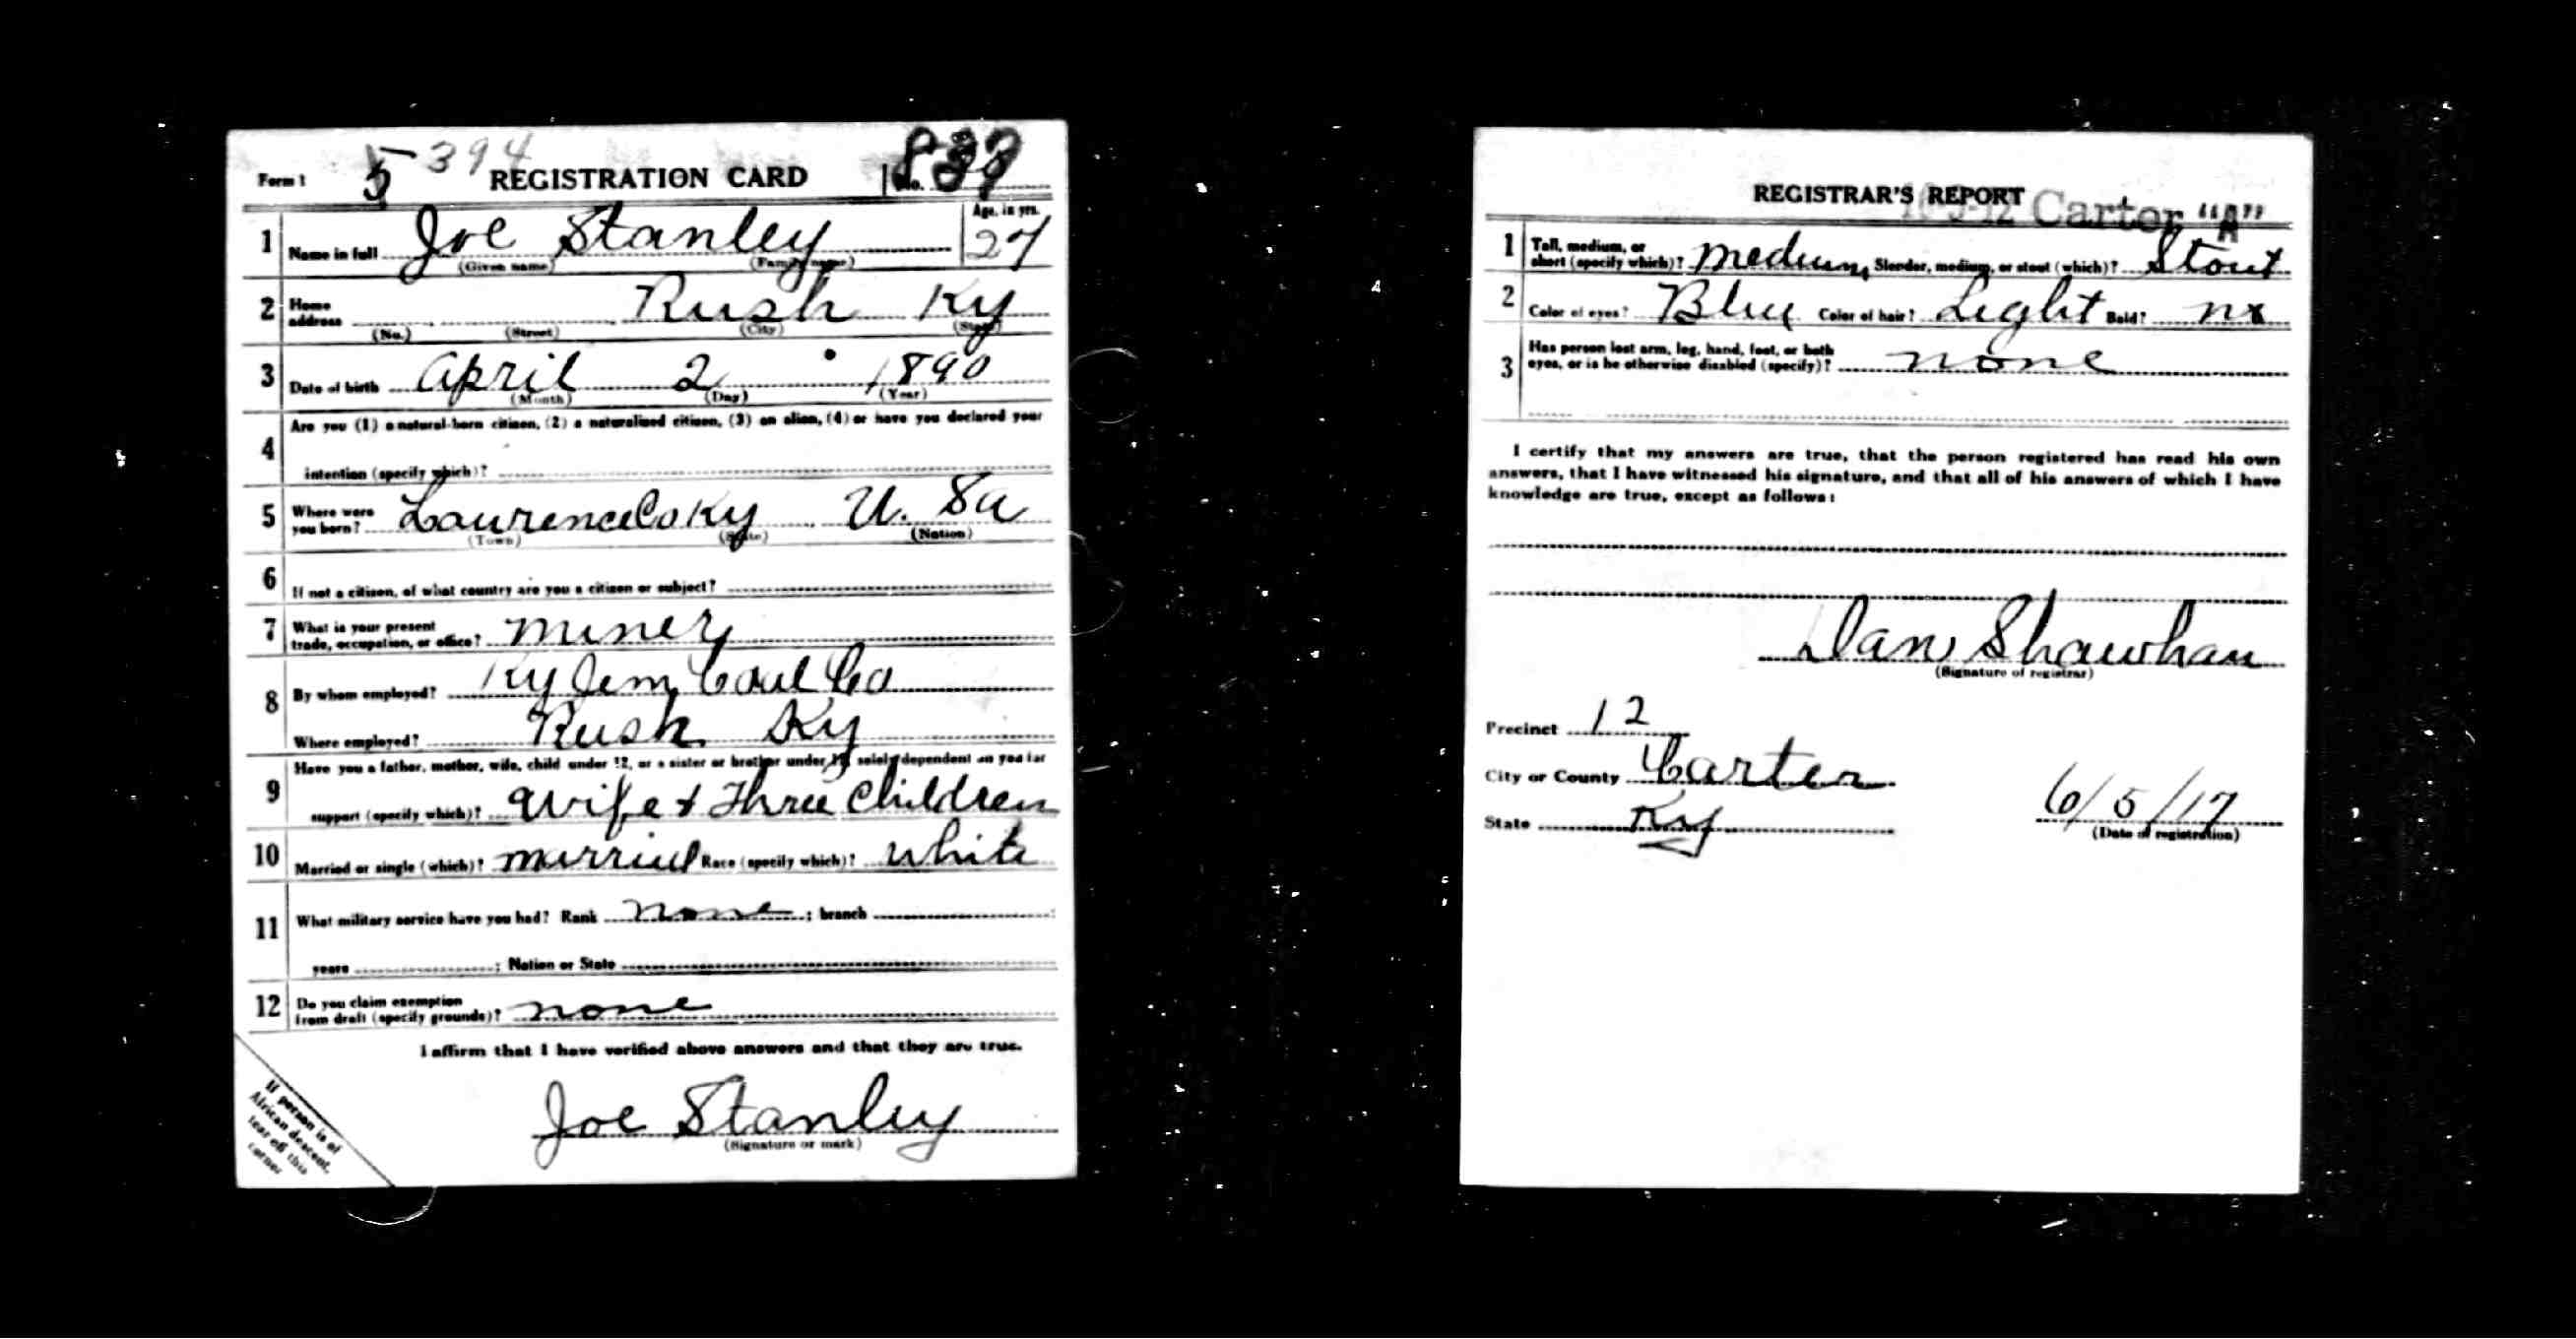 5 394
Form 1 5 REGISTRATION CARD No.
1 Name in full Joe Stanley Age, in yrs. 27
(Given name) (Family name)
2 Home address Rush Ky
(No.) (Street) (City) (State)
3 Date of birth April 2 1890
(Month) (Day) (Year)
4 Are you (1) a natural-born citizen, (2) a naturalized citizen, (3) an alien, (4) or have you declared your
intention (specify which)?
5 Where were you born? Lawrence Co Ky U. Sa
(Town) (State) (Nation)
6 If not a citizen, of what country are you a citizen or subject?
7 What is your present trade, occupation, or office? miner
8 By whom employed? Ky Jem Coal Co
Where employed? Rush Ky
9 Have you a father, mother, wife, child under 12, or a sister or brother under 12, solely dependent on you for
support (specify which)? Wife & Three Children
10 Married or single (which)? married Race (specify which)? White
11 What military service have you had? Rank none ; branch
years ; Nation or State
12 Do you claim exemption from draft (specify grounds)? none
I affirm that I have verified above answers and that they are true.
Joe Stanley
(Signature or mark)
If person is of
African descent,
tear off this
corner
4
REGISTRAR'S REPORT
16-3-12 Carter "A"
1 Tall, medium, or short (specify which)? medium Slender, medium, or stout (which)? Stout
2 Color of eyes? Blue Color of hair? Light Bald? no
3 Has person lost arm, leg, hand, foot, or both
eyes, or is he otherwise disabled (specify)? none
I certify that my answers are true, that the person registered has read his own
answers, that I have witnessed his signature, and that all of his answers of which I have
knowledge are true, except as follows:
Dan Shawhan
(Signature of registrar)
Precinct 12
City or County Carter
State Ky
6/5/17
(Date of registration)